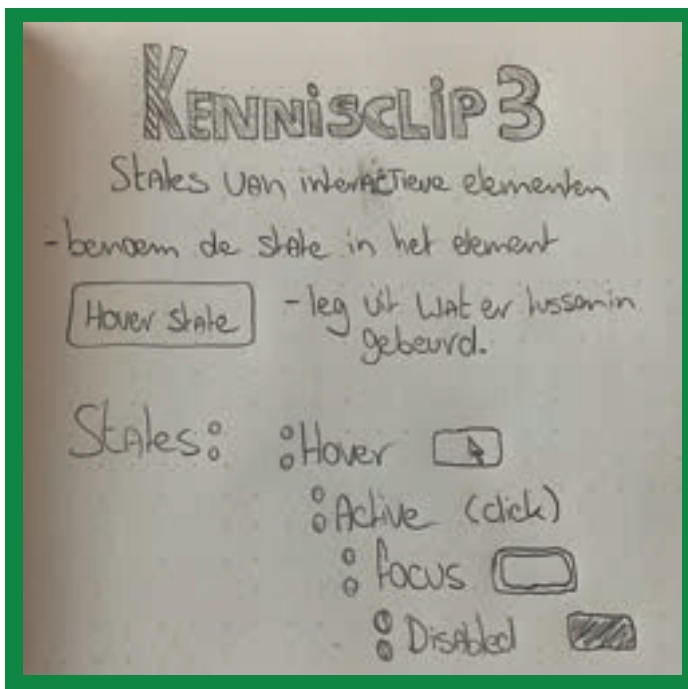 KENNISCLIP 3
States van interactieve elementen
- benoem de state in het element
Hover state
- leg uit wat er tussenin
gebeurd.
States:
:Hover
:Active (click)
:focus
:Disabled